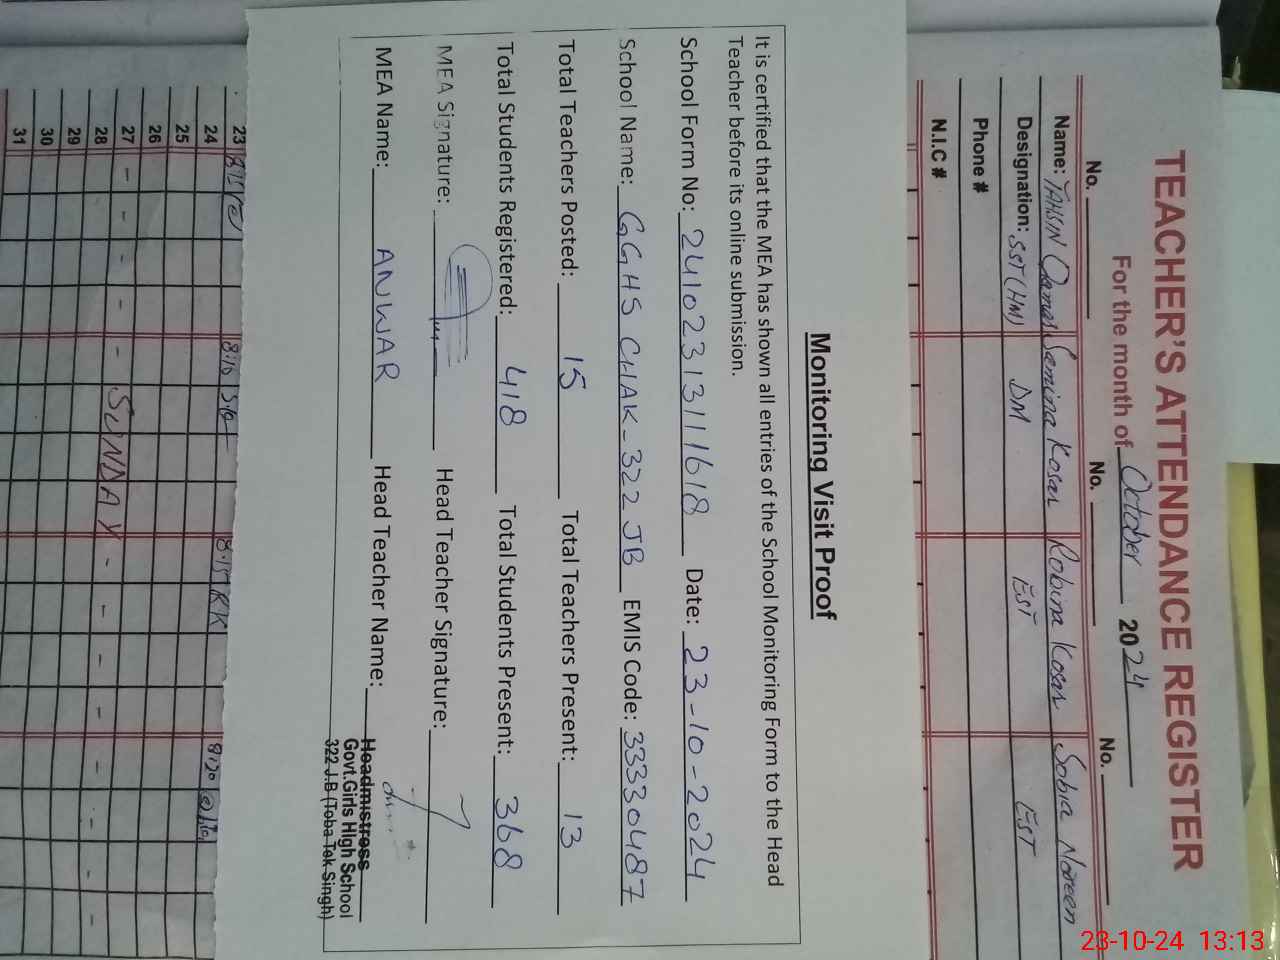 TEACHER'S ATTENDANCE REGISTER
For the month of October 2024
No. No. No.
Name: TAHSIN Qamar Samina Kosar Robina Kosar Sobia Noreen
Designation: SST(HM) DM EST EST
Phone #
N.I.C #
Monitoring Visit Proof
It is certified that the MEA has shown all entries of the School Monitoring Form to the Head
Teacher before its online submission.
School Form No: 24102313111618 Date: 23-10-2024
School Name: GGHS CHAK-322 JB EMIS Code: 33330487
Total Teachers Posted: 15 Total Teachers Present: 13
Total Students Registered: 418 Total Students Present: 368
MEA Signature: Head Teacher Signature:
MEA Name: ANWAR Head Teacher Name:
Headmistress
Govt.Girls High School
322 J.B (Toba Tek Singh)
23 8:15 8:10 8:15 RK 8:20
24
25
26
27 - - - - SUNDAY - - - - - - - -
28
29
30
31
23-10-24 13:13